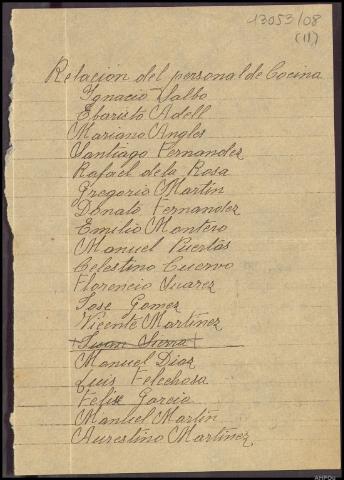 13053/08
(11)
Relación del personal de Cocina
Ignacio Dalbo
Ebaristo Adell
Mariano Angles
Santiago Fernandez
Rafael de la Rosa
Gregorio Martin
Donato Fernandez
Emilio Montero
Manuel Puertas
Celestino Cuervo
Florencio Suarez
Jose Gomez
Vicente Martinez
Juan Sierra
Manuel Diaz
Luis Felechosa
Felix Garcia
Manuel Martin
Aurestino Martinez
AHPOu